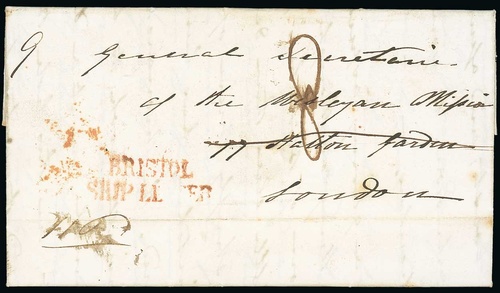 9 General Secretarie
8
of the Wesleyan Mission
77 Hatton Garden
London
BRISTOL
SHIP LETTER